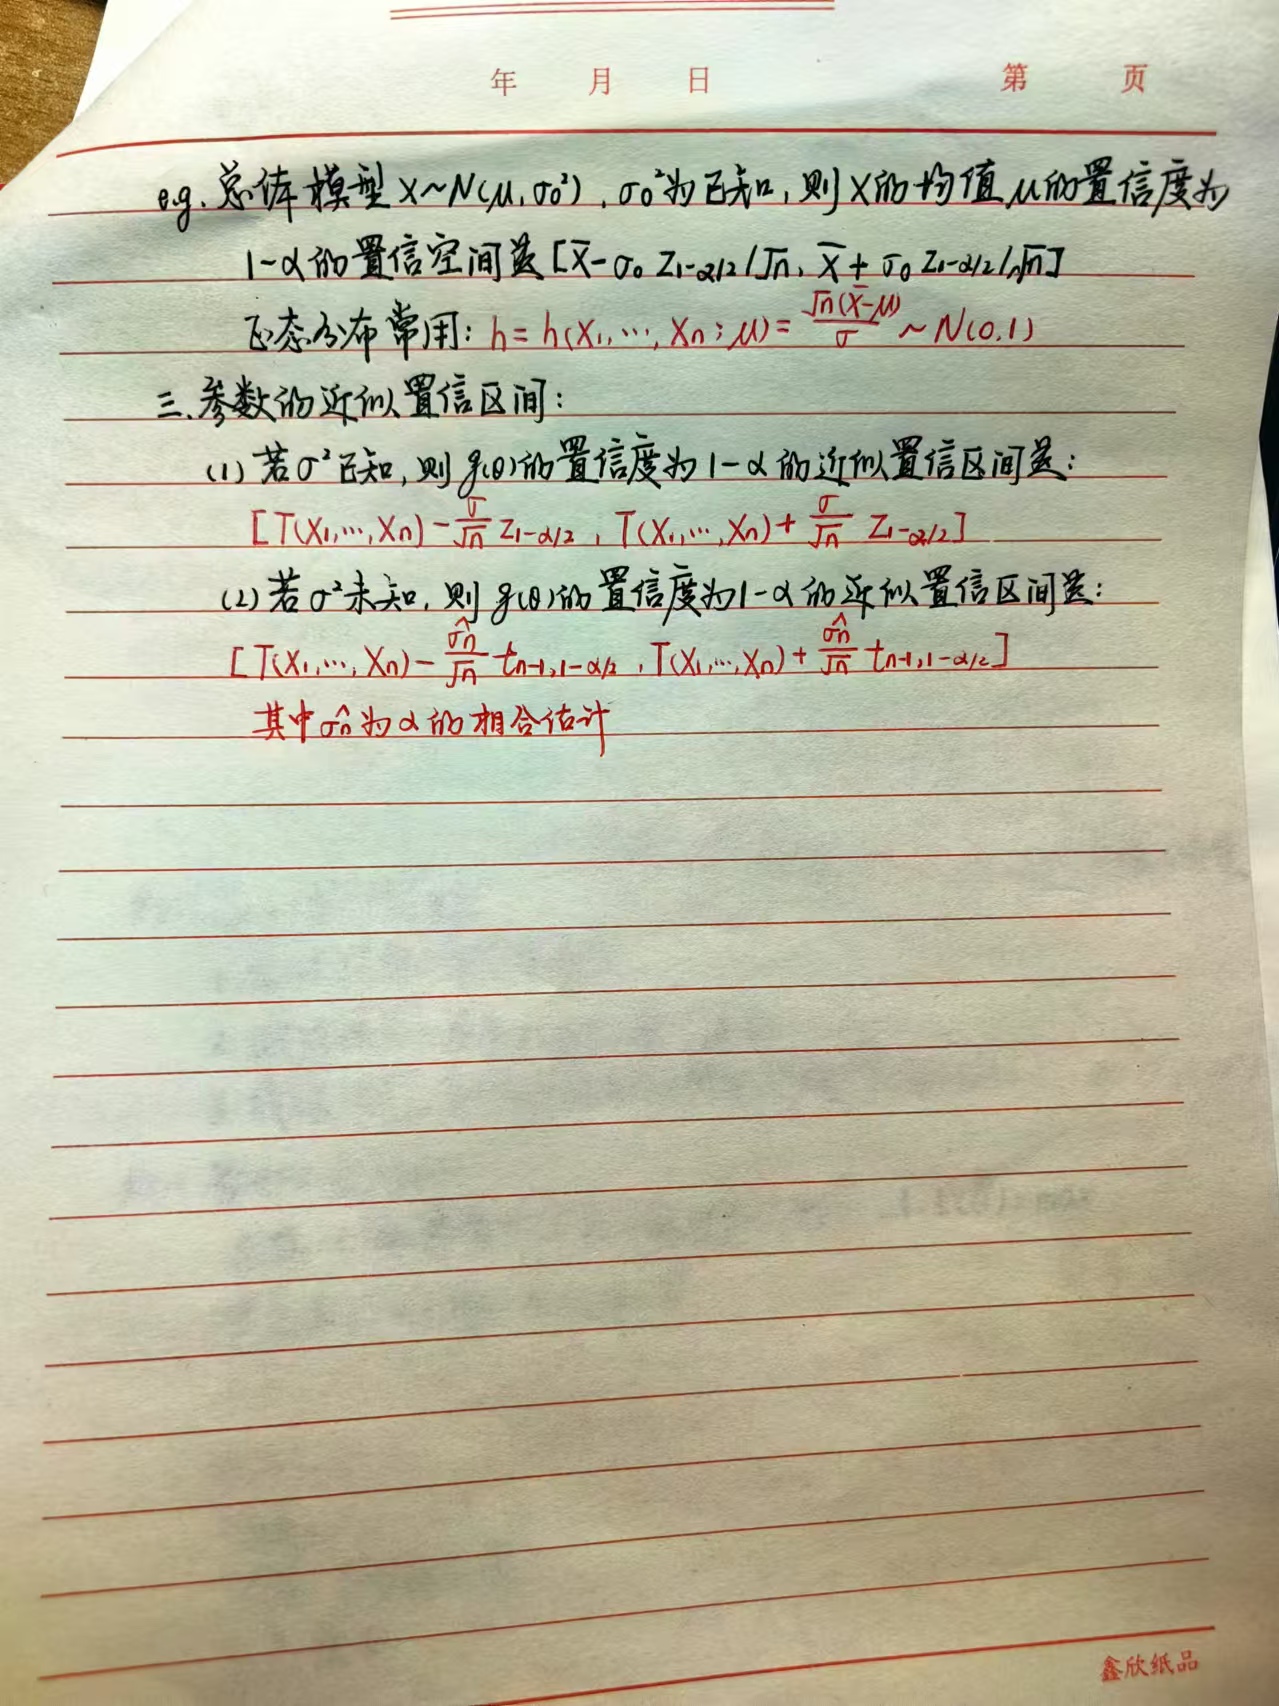 年 月 日 第 页
e.g. 总体模型 X~N(μ, σ₀²), σ₀²为已知, 则X的均值μ的置信度为
1-α的置信空间是 [X̄-σ₀ Z₁₋α/₂/√n, X̄+σ₀ Z₁₋α/₂/√n]
正态分布常用: h = h(X₁, ⋯, Xn; μ) = √n(X̄-μ)/σ ~ N(0,1)
三、参数的近似置信区间:
(1) 若σ²已知, 则g(θ)的置信度为1-α的近似置信区间是:
[T(X₁, ⋯, Xn) - σ/√n Z₁₋α/₂, T(X₁, ⋯, Xn) + σ/√n Z₁₋α/₂]
(2) 若σ²未知, 则g(θ)的置信度为1-α的近似置信区间是:
[T(X₁, ⋯, Xn) - σ̂n/√n tn-1,1-α/2, T(X₁, ⋯, Xn) + σ̂n/√n tn-1,1-α/2]
其中σ̂n为α的相合估计
鑫欣纸品